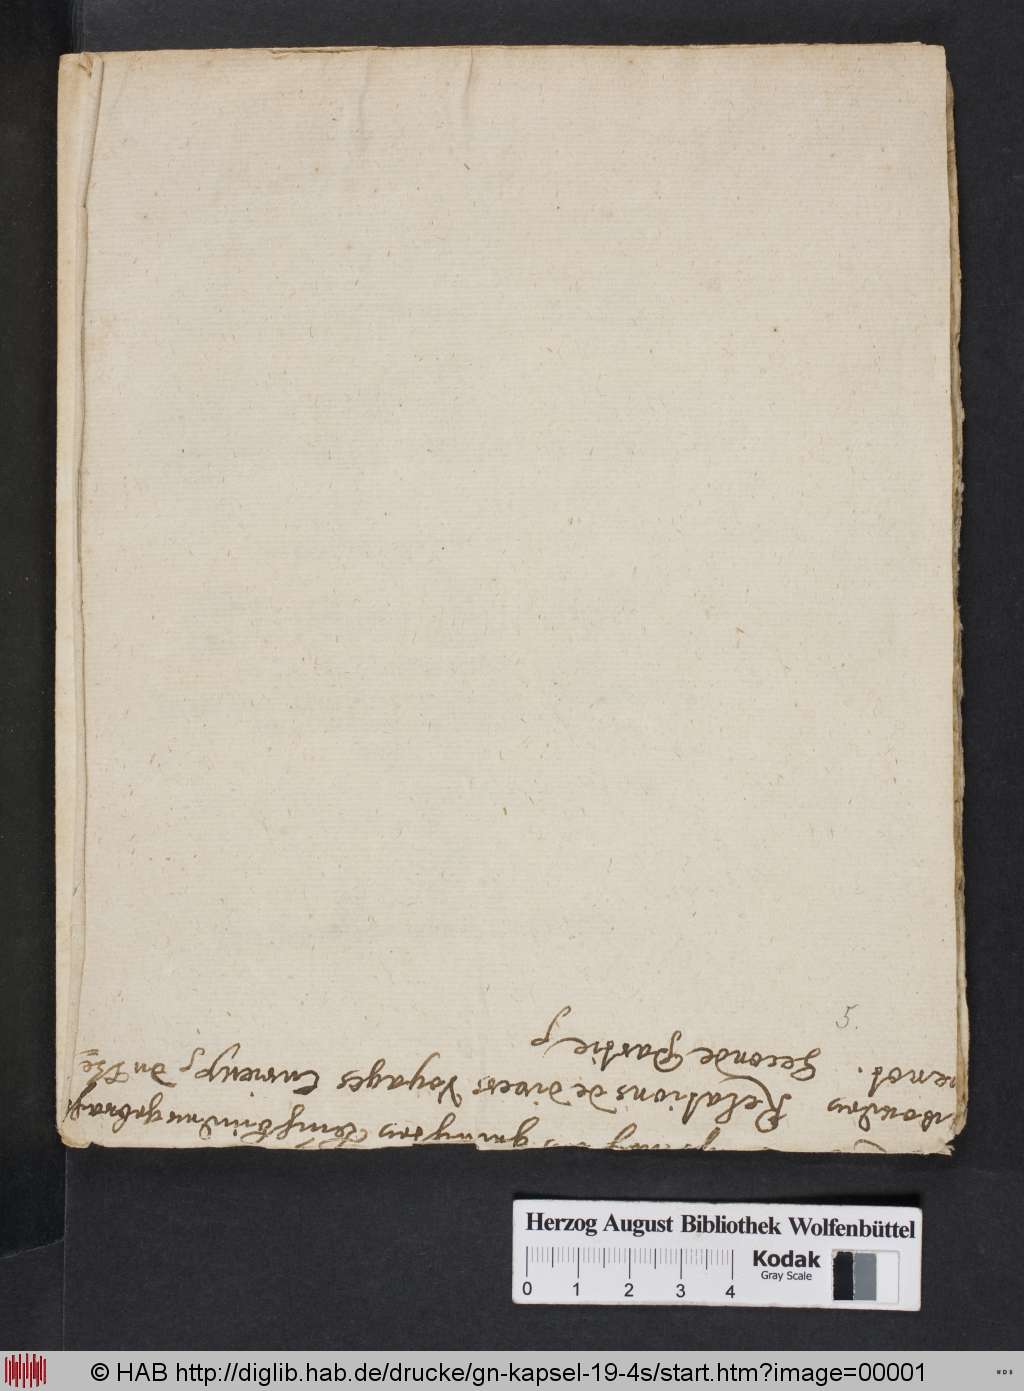 5.
worden Relations de divers Voyages Curieux, du The
venot. Seconde Partie
Herzog August Bibliothek Wolfenbüttel
0 1 2 3 4
Kodak
Gray Scale
© HAB http://diglib.hab.de/drucke/gn-kapsel-19-4s/start.htm?image=00001